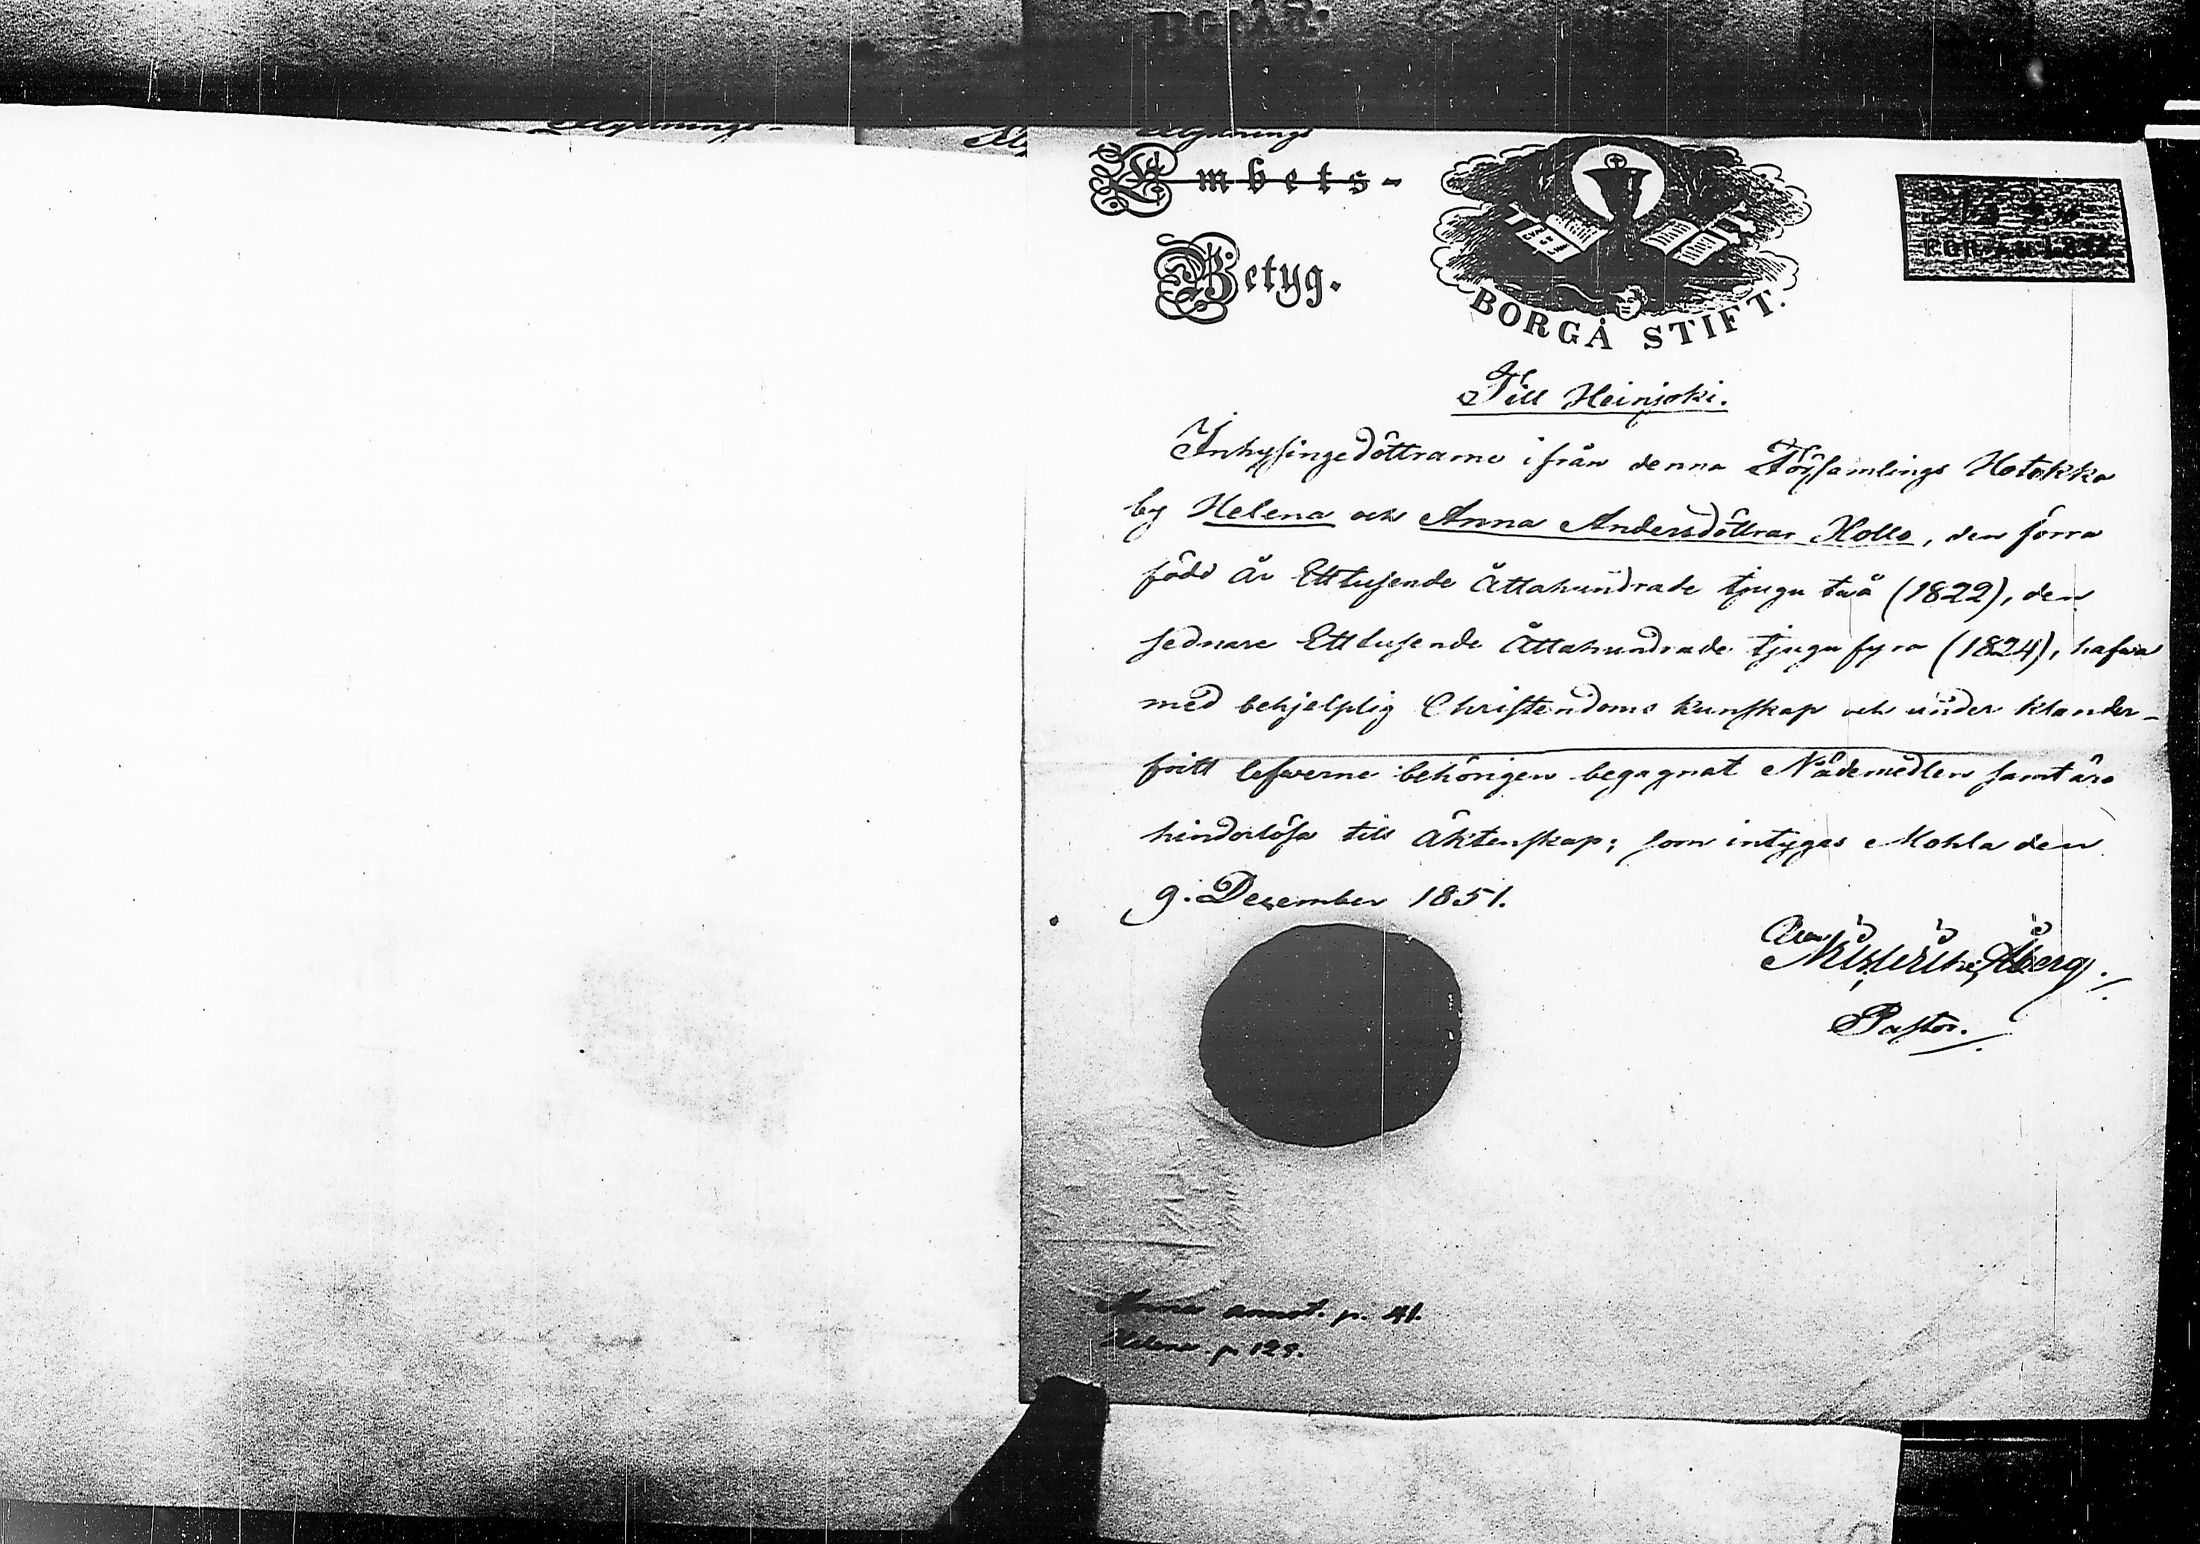 Utgivnings-
Embets-
Betyg.
BORGÅ STIFT.
Till Heinjoki.
Inhysingedöttrarne ifrån denna Församlings Hotokka
by Helena och Anna Andersdöttrar Hollo, den förra
född år Ett tusende Åttahundrade tjugu två (1822), den
sednare Ett tusende Åttahundrade tjugu fyra (1824), hafva
med behjelplig Christendoms kunskap och under klander-
fritt lefverne behörigen begagnat Nådemedlen samt äro
hinderlösa till Äktenskap; som intygas Mohla den
9. December 1851.
Åberg.
Pastor.
Anna annot. p. 41.
Helena p 129.